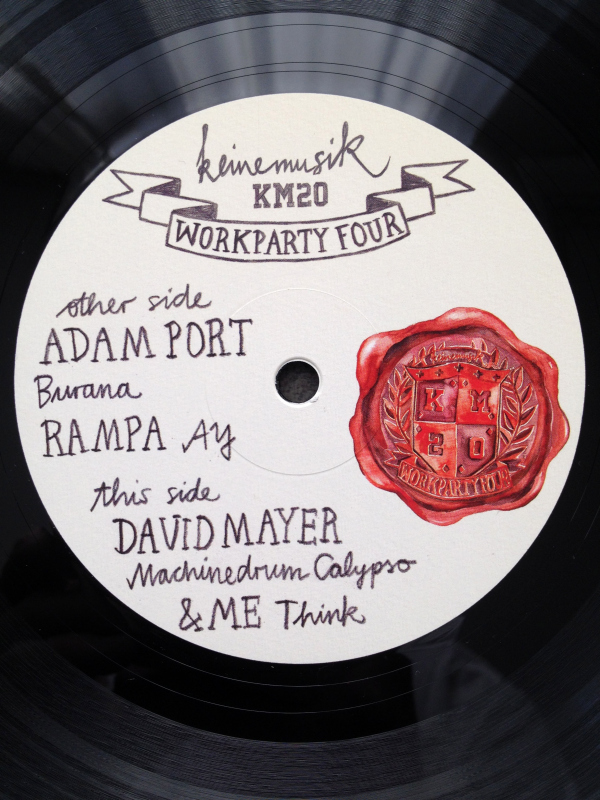 keinemusik
KM20
WORKPARTY FOUR
other side
ADAM PORT
Burana
RAMPA Ay
this side
DAVID MAYER
Machinedrum Calypso
&ME Think
keinemusik
K M
2 0